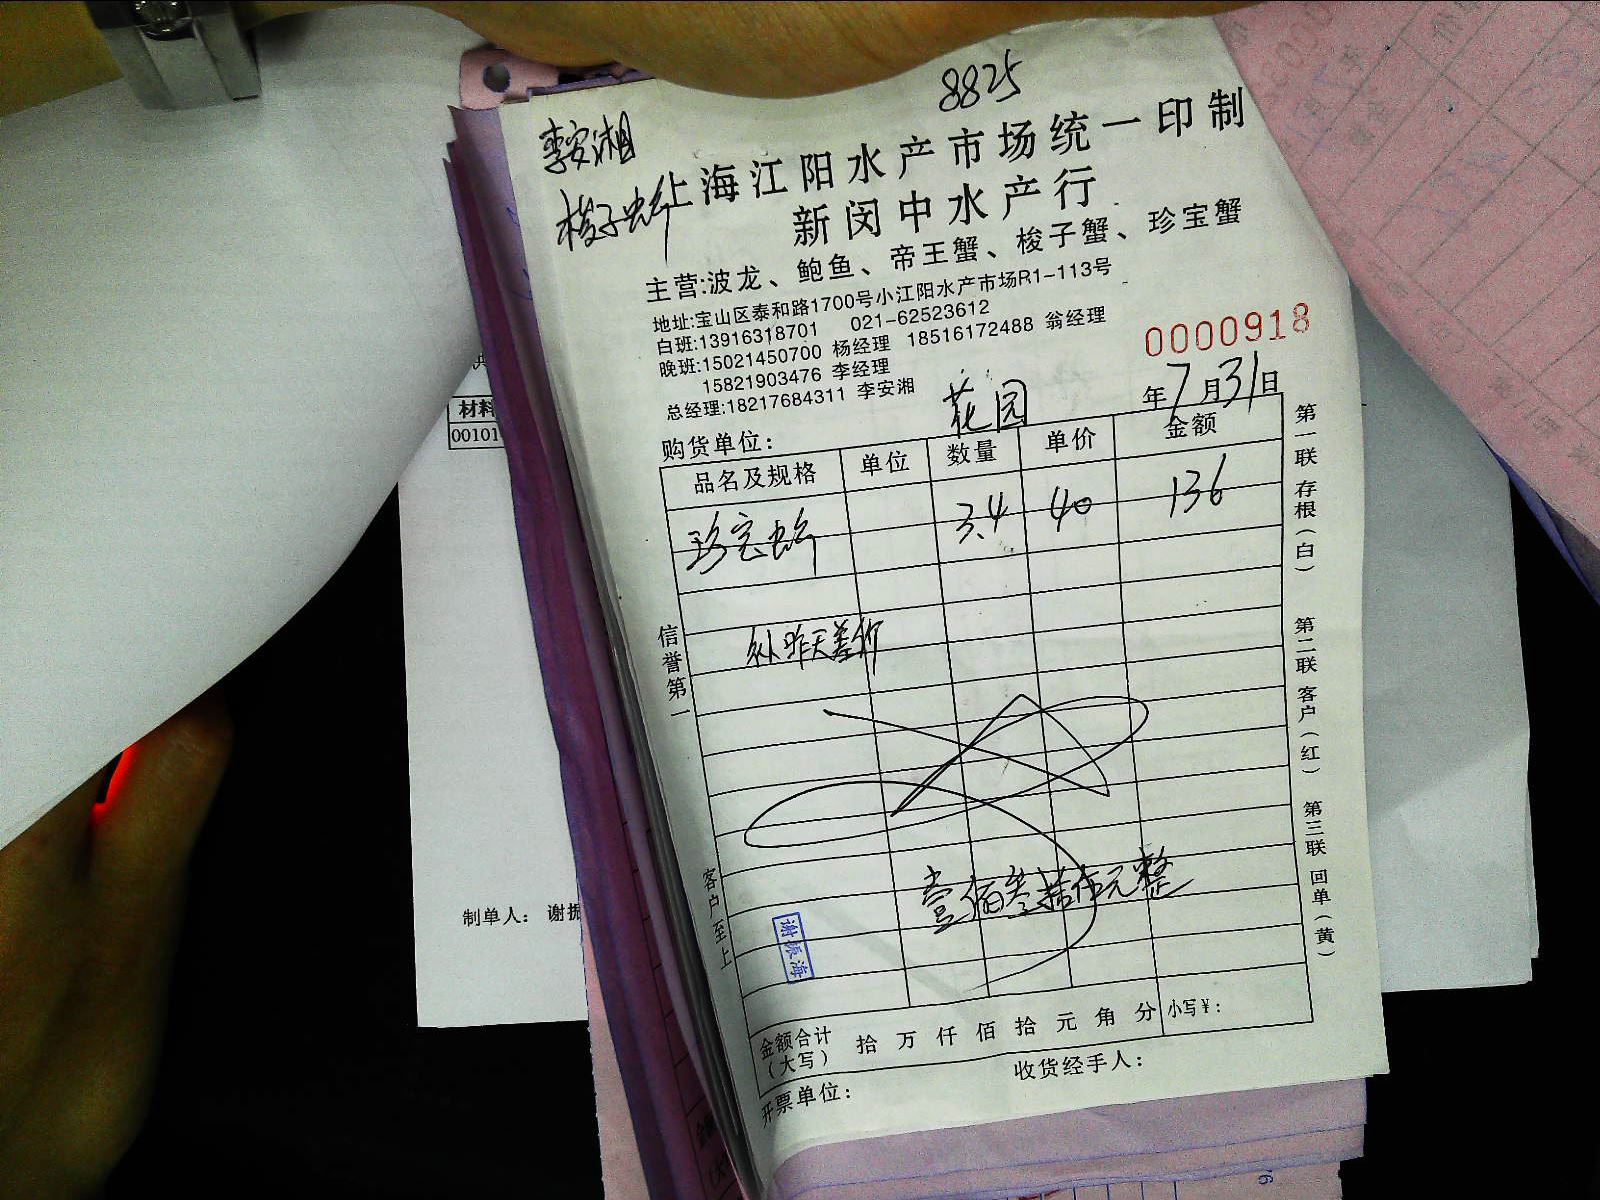 8825
李安湘
梭子蟹
上海江阳水产市场统一印制
新闵中水产行
主营:波龙、鲍鱼、帝王蟹、梭子蟹、珍宝蟹
地址:宝山区泰和路1700号小江阳水产市场R1-113号
白班:13916318701 021-62523612
晚班:15021450700 杨经理 18516172488 翁经理
15821903476 李经理
总经理:18217684311 李安湘
0000918
年7月31日
购货单位: 花园
品名及规格 单位 数量 单价 金额
珍宝蟹 3.4 40 136
昨天差价
壹佰叁拾 元整
谢振海
金额合计(大写) 拾 万 仟 佰 拾 元 角 分 小写¥:
开票单位: 收货经手人:
信誉第一
客户至上
第一联 存根(白) 第二联 客户(红) 第三联 回单(黄)
材料
00101
制单人: 谢振